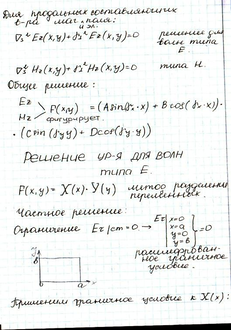 Для продольных составляющих
в-ра маг. поля:
и эл.
∇s² Ez(x,y) + γs² Ez(x,y) = 0 решение для
волн типа
E.
∇s² Hz(x,y) + γs² Hz(x,y) = 0 типа H.
Общее решение:
Ez
Hz P(x,y) = (A sin(γx·x) + B cos(γx·x)·
фигурирует.
·(C sin(γy y) + D cos(γy·y)
Решение ур-я для волн
типа E.
P(x,y) = X(x)·Y(y) метод разделения
переменных.
Частное решение:
Ограничение Eτ|ст = 0 → Ez| x=0
x=a
y=0
y=b = 0
расшифрован-
ное граничное
условие.
b
a
Применим граничное условие к X(x):